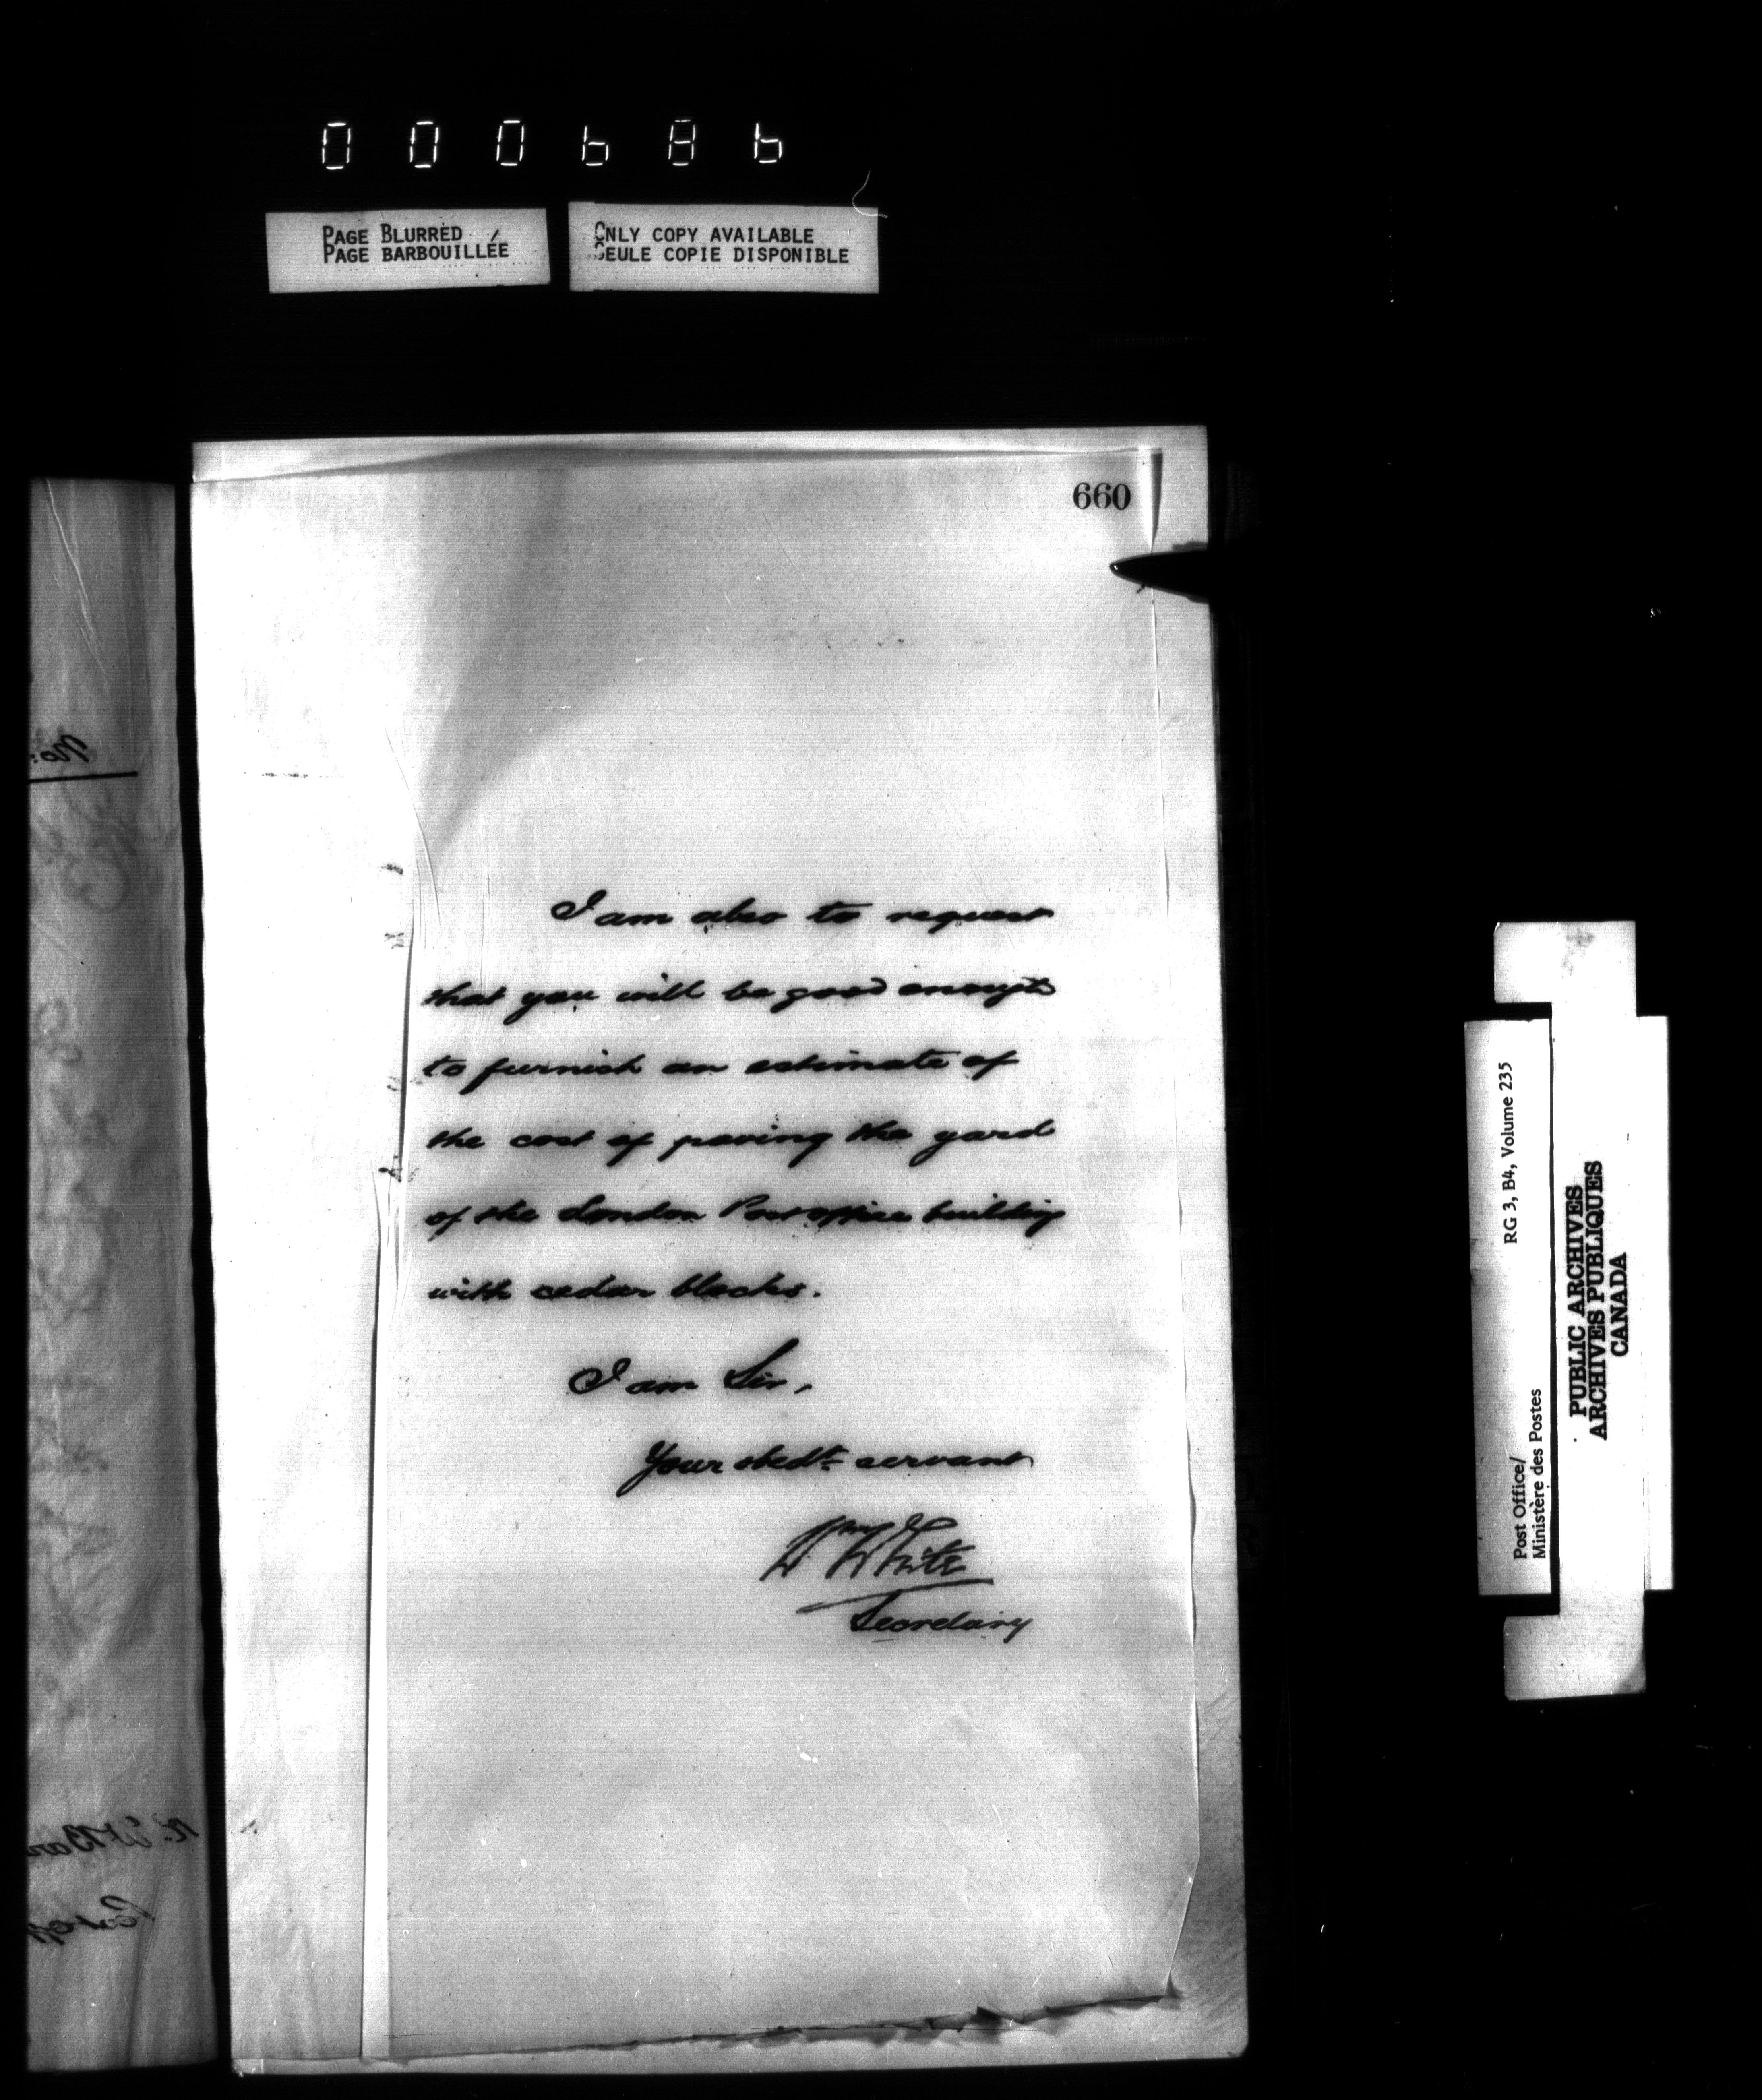 000686
PAGE BLURRED
PAGE BARBOUILLÉE
ONLY COPY AVAILABLE
SEULE COPIE DISPONIBLE
660
I am also to request
that you will be good enough
to furnish an estimate of
the cost of paving the yard
of the London Post office building
with cedar blocks.
I am Sir,
Your obedt. servant
Wm White
Secretary
RG 3, B4, Volume 235
Post Office/
Ministère des Postes
PUBLIC ARCHIVES
ARCHIVES PUBLIQUES
CANADA